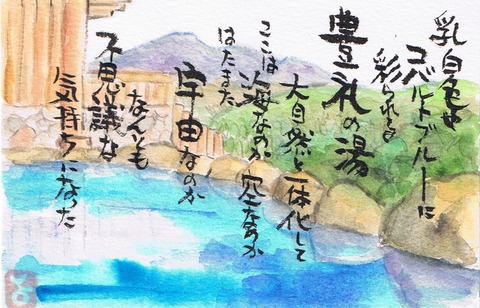 乳白色や
コバルトブルーに
彩られる
豊礼の湯
大自然と一体化して
ここは
海なのか空なのか
はたまた
宇宙なのか
なんとも
不思議な
気持ちになった